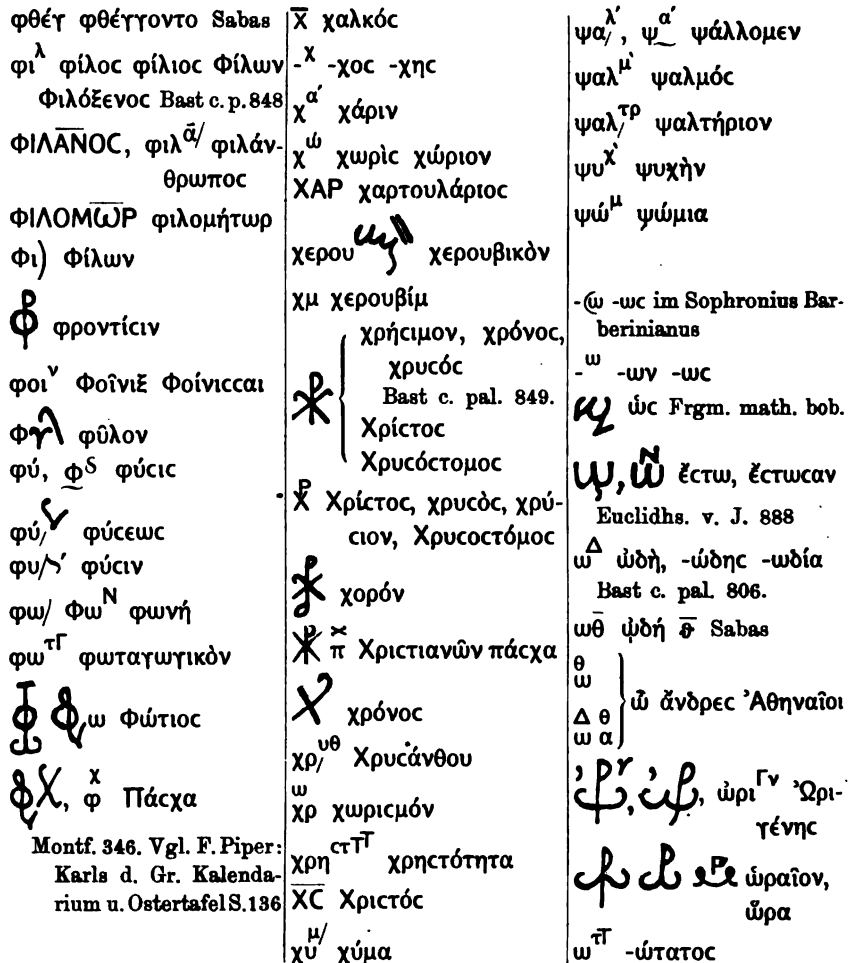 φθέγ φθέγγοντο Sabas
φιλ φίλοϲ φίλιοϲ Φίλων
Φιλόξενοϲ Bast c. p. 848
ΦΙΛΑ̅Ν̅ΟϹ, φιλᾱ́/ φιλάν-
θρωποϲ
ΦΙΛΟΜω̅Ρ φιλομήτωρ
Φι) Φίλων
φροντίϲιν
φοιν Φοῖνιξ Φοίνιϲϲαι
φῦλον
φύ, φϲ φύϲιϲ
φύ/ φύϲεωϲ
φυ/ φύϲιν
φω/ ΦωΝ φωνή
φωτΓ φωταγωγικὸν
ω Φώτιοϲ
φ̽ Πάϲχα
Montf. 346. Vgl. F. Piper:
Karls d. Gr. Kalenda-
rium u. Ostertafel S. 136
Χ̅ χαλκόϲ
-χ -χοϲ -χηϲ
χα΄ χάριν
χώ χωρὶϲ χώριον
ΧΑΡ χαρτουλάριοϲ
χερου χερουβικὸν
χμ χερουβίμ
χρήϲιμον, χρόνοϲ,
χρυϲόϲ
Bast c. pal. 849.
Χρίϲτοϲ
Χρυϲόϲτομοϲ
Χρίϲτοϲ, χρυϲὸϲ, χρύ-
ϲιον, Χρυϲοϲτόμοϲ
χορόν
Χριϲτιανῶν πάϲχα
χρόνοϲ
χρ/υθ Χρυϲάνθου
χρω χωριϲμόν
χρηϲτΤΓ χρηϲτότητα
Χ̅Ϲ̅ Χριϲτόϲ
χυμ/ χύμα
ψα/λ΄, ψα΄ ψάλλομεν
ψαλμ` ψαλμόϲ
ψαλ/τρ ψαλτήριον
ψυχ` ψυχὴν
ψώμ ψώμια
-ωϲ im Sophronius Bar-
berinianus
-ω -ων -ωϲ
ὡϲ Frgm. math. bob.
ἔϲτω, ἔϲτωϲαν
Euclidhs. v. J. 888
ωΔ ὠδὴ, -ώδηϲ -ωδία
Bast c. pal. 806.
ωθ̅ ᾠδή Sabas
θ
ω
Δ θ
ω α
ὦ ἄνδρεϲ Ἀθηναῖοι
ὠριΓν Ὠρι-
γένηϲ
ὡραῖον,
ὥρα
ωτΓ -ώτατοϲ